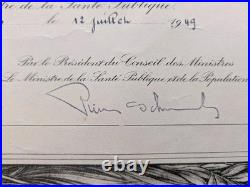 tre de la Santé Publique.
le 12 juillet 1949
Par le Président du Conseil des Ministres
Le Ministre de la Santé Publique et de la Population